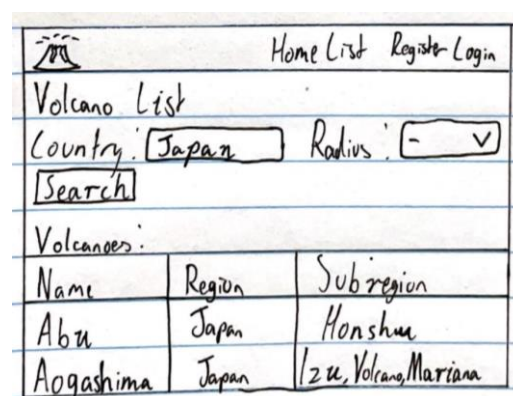 Home List Register Login
Volcano List
Country: Japan Radius: -
Search
Volcanoes:
Name Region Subregion
Abu Japan Honshu
Aogashima Japan Izu, Volcano, Mariana